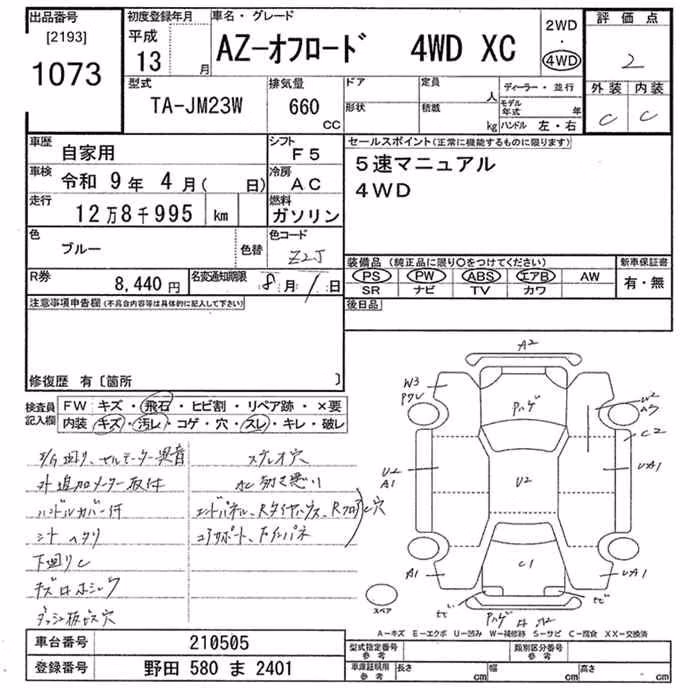 出品番号
[2193]
1073
初度登録年月
平成
13
月
車名・グレード
AZ-オフロード 4WD XC
2WD
・
4WD
評価点
2
外装 内装
C C
型式
TA-JM23W
排気量
660
CC
ドア
形状
定員
人
積載
kg
ディーラー・並行
モデル年式 年
ハンドル 左・右
車歴
自家用
シフト
F5
車検
令和 9年 4月( 日)
冷房
AC
走行
12万8千995 km
燃料
ガソリン
色
ブルー
色替
色コード
Z2J
R券
8,440円
名変通知期限
8月 1日
セールスポイント(正常に機能するものに限ります)
5速マニュアル
4WD
装備品 (純正品に限り○をつけてください)
PS PW ABS エアB AW
SR ナビ TV カワ
新車保証書
有・無
後日品
注意事項申告欄(不具合内容等は具体的に記入して下さい)
修復歴 有〔箇所 〕
検査員
記入欄
FW キズ・飛石・ヒビ割・リペア跡・×要
内装 キズ・汚レ・コゲ・穴・スレ・キレ・破レ
セルモーター異音
外追加メーター取付
ハンドルカバー付
シートヘタリ
下廻りC
ステレオ穴
A2
W3
Pハゲ
W2
C2
U2
A1
U2
UA1
A1
C1
UA1
スペア
Pハゲ
A-キズ E-エクボ U-凹み W-補修跡 S-サビ C-腐食 XX-交換済
車台番号
210505
登録番号
野田 580 ま 2401
型式指定番号
参考
類別区分番号
参考
車庫証明用
参考
長さ cm 幅 cm 高さ cm